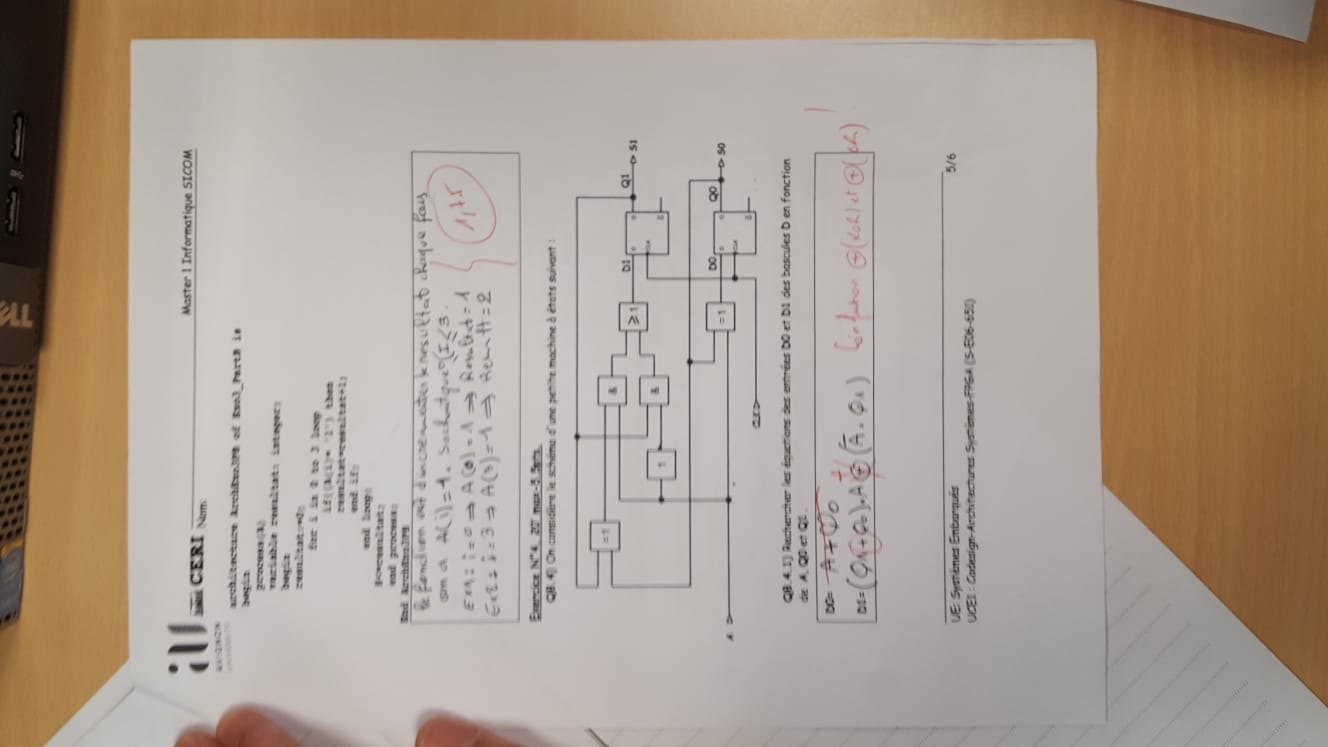 DELL
AVIGNON
UNIVERSITÉ
CERI Nom:
Master 1 Informatique SICOM
architecture ArchExo3PB of Exo3_PartB is
begin
process(A)
variable resultat: integer;
begin
resultat:=0;
for i in 0 to 3 loop
if((A(i)= '1') then
resultat=resultat+1;
end if;
end loop;
S<=resultat;
end process;
End ArchExo3PB
fonction est d'incrementer le resultat chaque fois
on a A(i)=1. Sachant que 0≤I≤3.
Ex1: i=0 ⇒ A(0)=1 ⇒ Resultat=1
Ex2: i=3 ⇒ A(3)=1 ⇒ =2
1,75
Exercice N°4, 20' max-5.5pts.
Q8.4) On considère le schéma d'une petite machine à états suivant :
=1
&
≥1
D1
Q1
S1
1
&
=1
D0
Q0
S0
A
CLK
Q8.4.1) Rechercher les équations des entrées D0 et D1 des bascules D en fonction
de A, Q0 et Q1.
D0= A+Q0
D1=(Q1+Q0).A ⊕ (Ā.Q1) ⊕ et ⊕
UE: Systèmes Embarqués
5/6
UCE1 : Codesign-Architectures Systèmes-FPGA (S-E06-651)